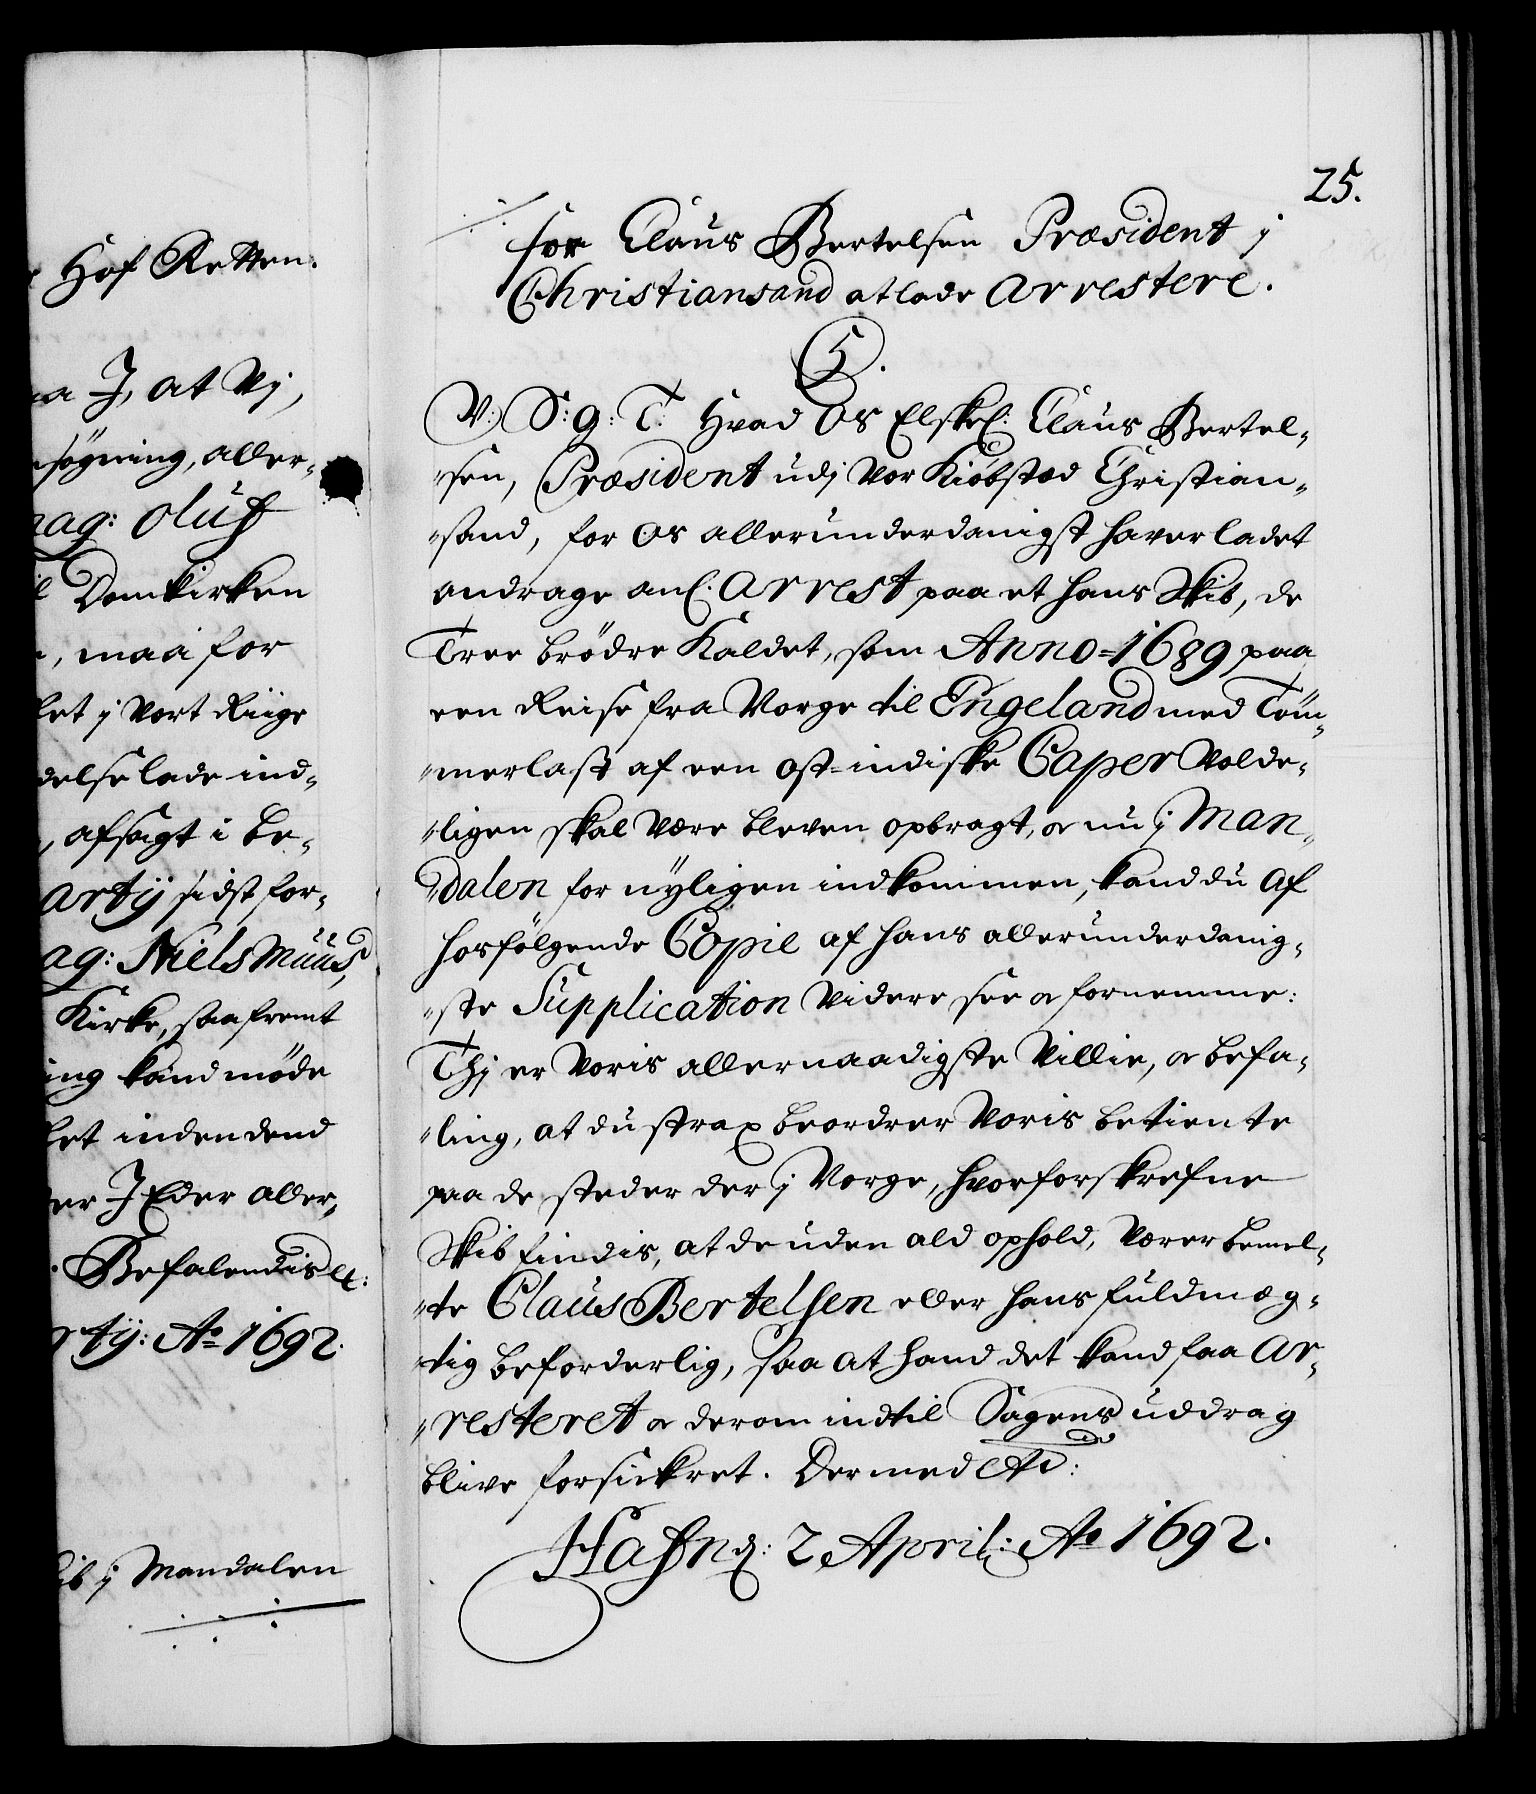 Hof Retten.
J, at Vj,
søgning, aller-
mag: Oluf
Domkirken
, maa for
let j Vort Riige
delse lade ind-
, afsagt i be-
arty sidst for-
ag: Niels Muus,
Kirke, saafremt
ing kand møde
let indendend
er J Eder aller,
Befalendis etc:
rty: Ao 1692.
ib j Mandalen
25.
for Claus Bertelsen Præsident j
Christiansand at lade Arrestere.
5.
V: S: g: T: Hvad Os Elskel: Claus Bertel-
sen, Præsident udj Vor Kiøbsted Christian-
sand, for Os allerunderdanigst haver ladet
andrage anl. Arrest paa et hans Skib, de
Tree brødre Kaldet, som Anno 1689 paa
een Reise fra Norge til Engeland med Tøm-
merlast af een Ost-indiske Caper Volde-
ligen skal være bleven opbragt, och nu j Man-
dalen for nyligen indkommen, kand du af
hosfølgende Copie af hans allerunderdanig-
ste Supplication Videre see och fornemme:
Thj er Voris allernaadigste Villie, och befa-
ling, at du strax beordrer Voris betiente
paa de steder der j Norge, hvor forskrefne
Skib findis, at de uden ald ophold, Værer bemel-
te Claus Bertelsen eller hans fuldmæg-
tig beforderlig, saa at hand det kand faa Ar-
resteret och derom indtil Sagens uddrag
blive forsickret. Dermed etc:
Hafn: 2 April: Ao 1692.